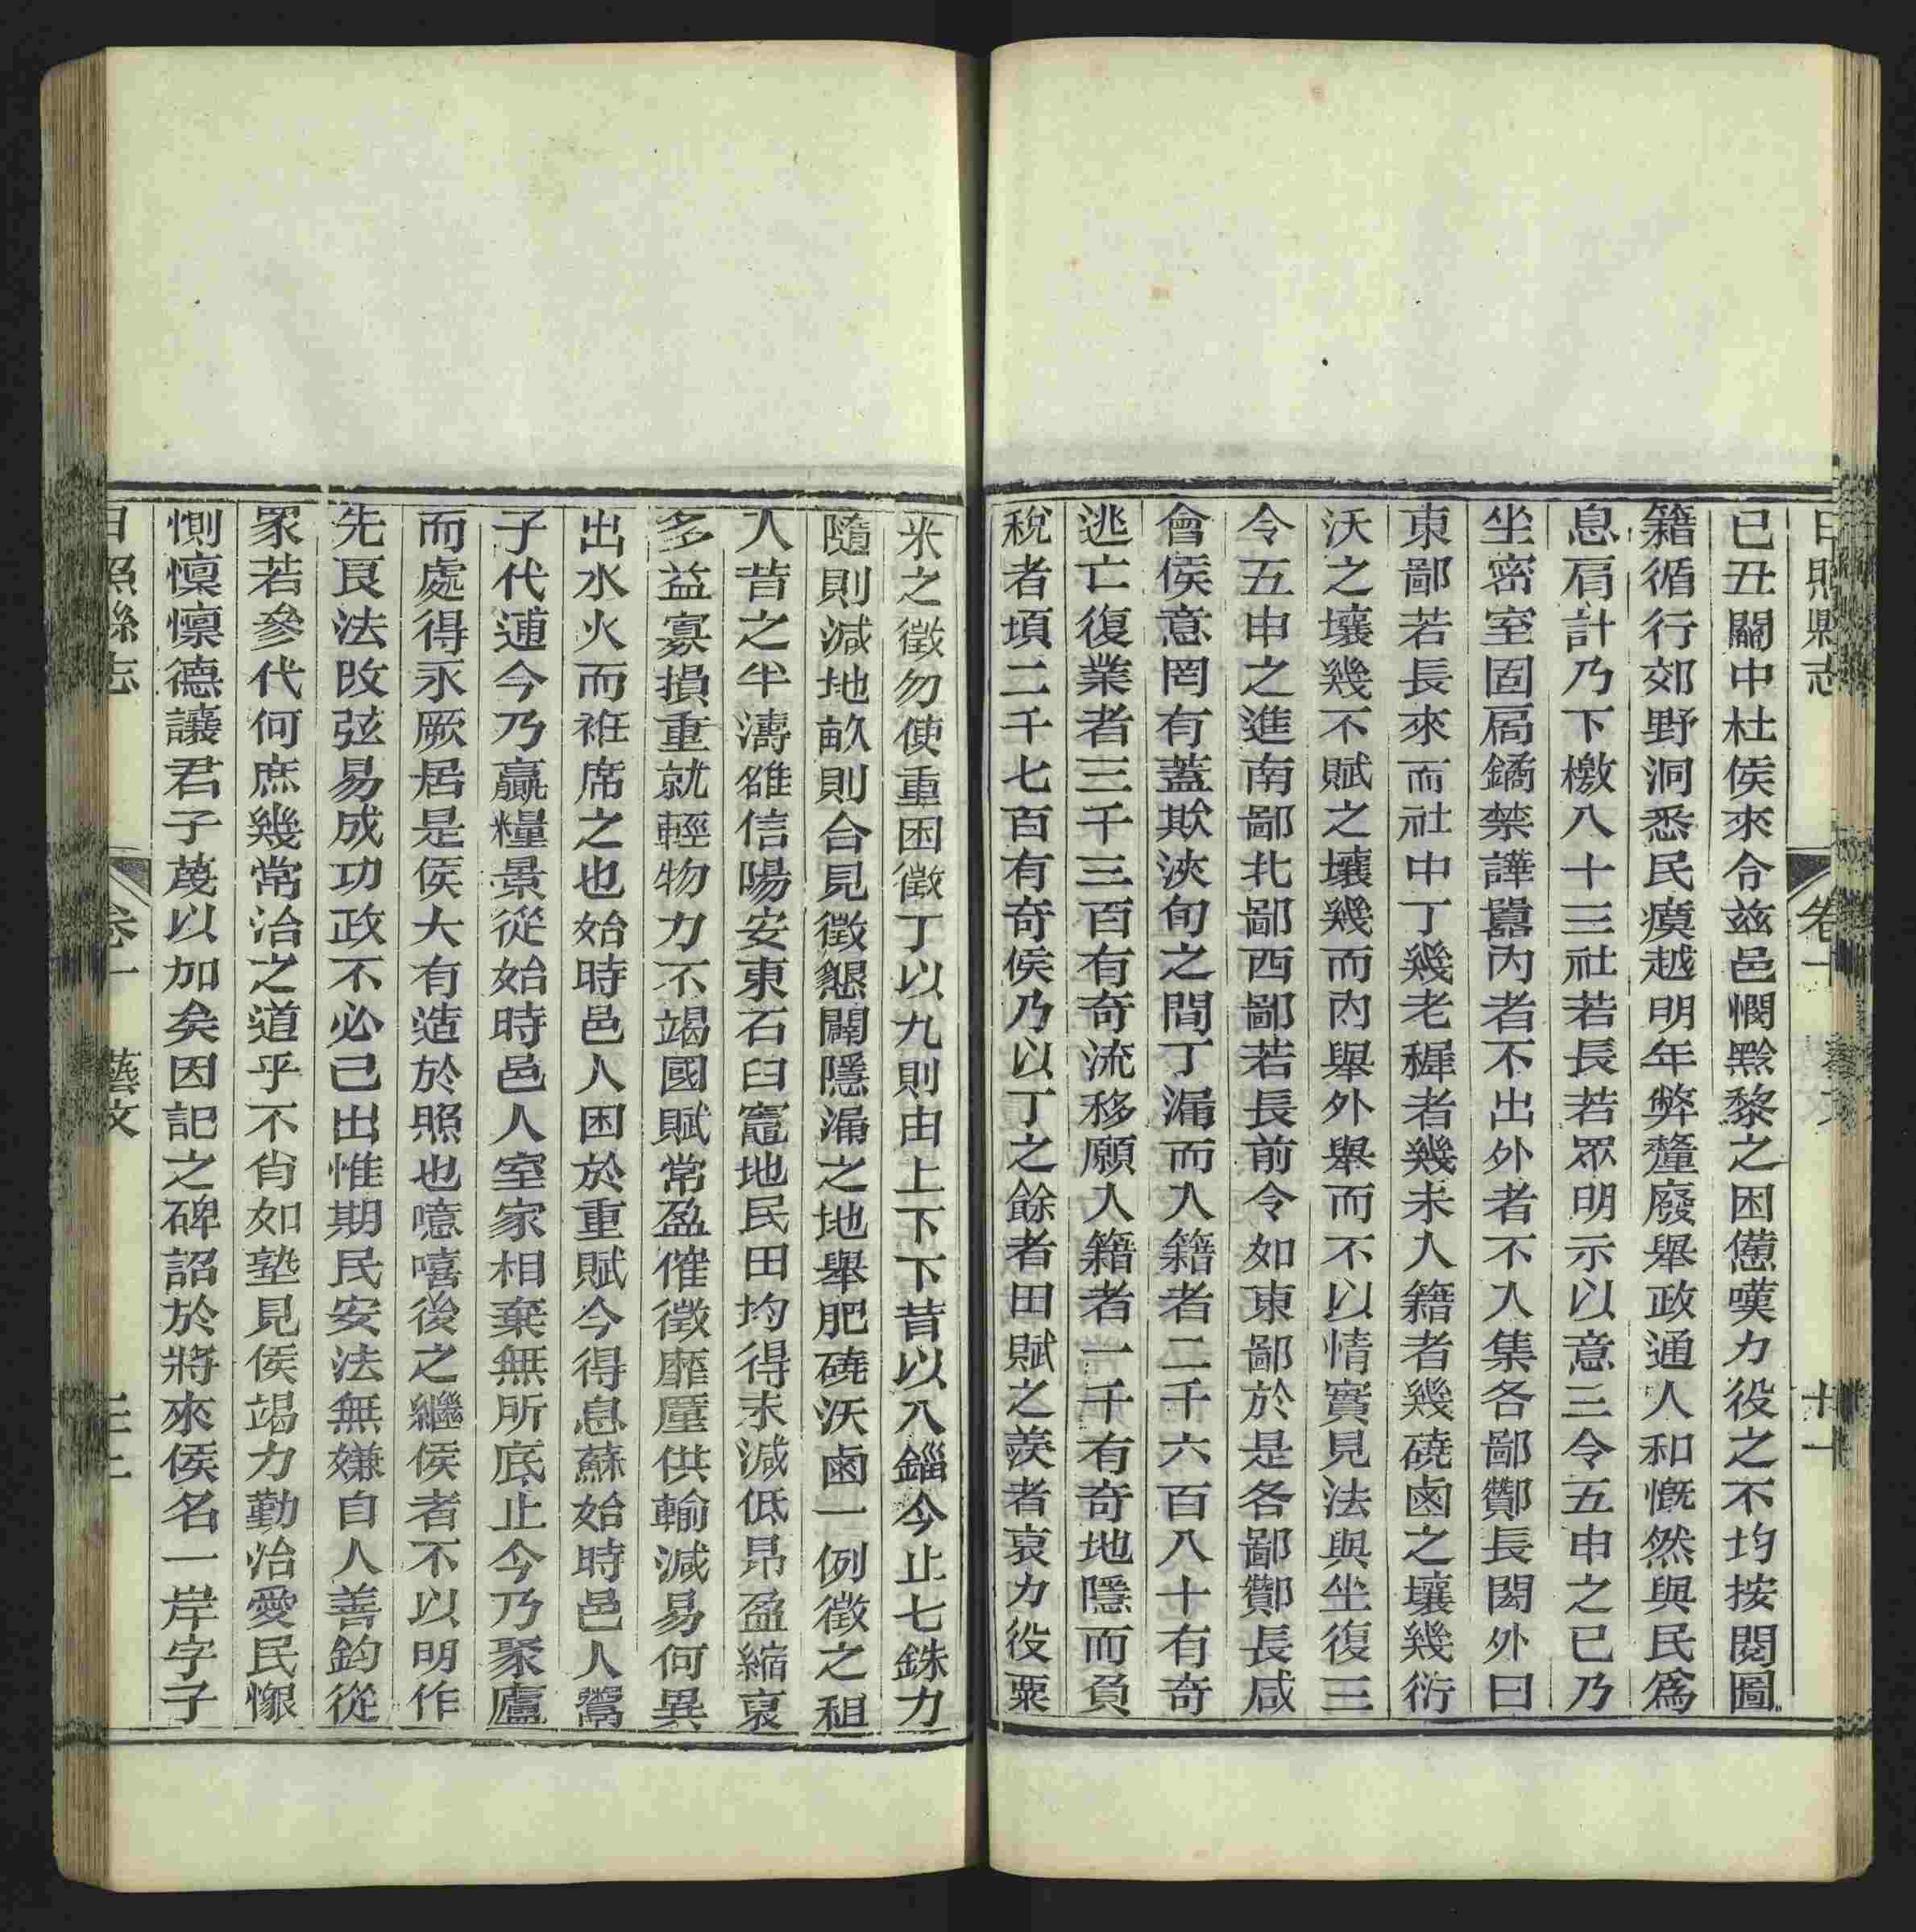 日照縣志
卷十
十一
已丑關中杜侯來令兹邑憫黔黎之困憊嘆力役之不均按閱圖
籍循行郊野洞悉民瘼越明年弊釐廢舉政通人和慨然與民爲
息肩計乃下檄八十三社若長若眾明示以意三令五申之已乃
坐密室固扃鐍禁譁囂內者不出外者不入集各鄙酇長閎外曰
東鄙若長來而社中丁幾老穉者幾未入籍者幾磽鹵之壤幾衍
沃之壤幾不賦之壤幾而內舉外舉而不以情實見法與坐復三
令五申之進南鄙北鄙西鄙若長前令如東鄙於是各鄙酇長咸
會侯意罔有蓋欺浹旬之間丁漏而入籍者二千六百八十有奇
逃亡復業者三千三百有奇流移願入籍者一千有奇地隱而負
稅者頃二千七百有奇侯乃以丁之餘者田賦之羨者哀力役粟
米之徵勿使重困徵丁以九則由上下下昔以八錙今止七銖力
隨則減地畝則合見徵懇闢隱漏之地舉肥磽沃鹵一例徵之租
入昔之半濤雒信陽安東石臼竈地民田均得末減低昂盈縮裒
多益寡損重就輕物力不竭國賦常盈催徵靡厪供輸減易何異
出水火而袵席之也始時邑人困於重賦今得息蘇始時邑人鬻
子代逋今乃贏糧景從始時邑人室家相棄無所底止今乃聚廬
而處得永厥居是侯大有造於照也噫嘻後之繼侯者不以明作
先良法攺弦易成功政不必己出惟期民安法無嫌自人善鈞從
眾若參代何庶幾常治之道乎不肖如塾見侯竭力勤治愛民懷
惻懍懍德讓君子蔑以加矣因記之碑詔於將來侯名一岸字子
日照縣志
卷十
藝文